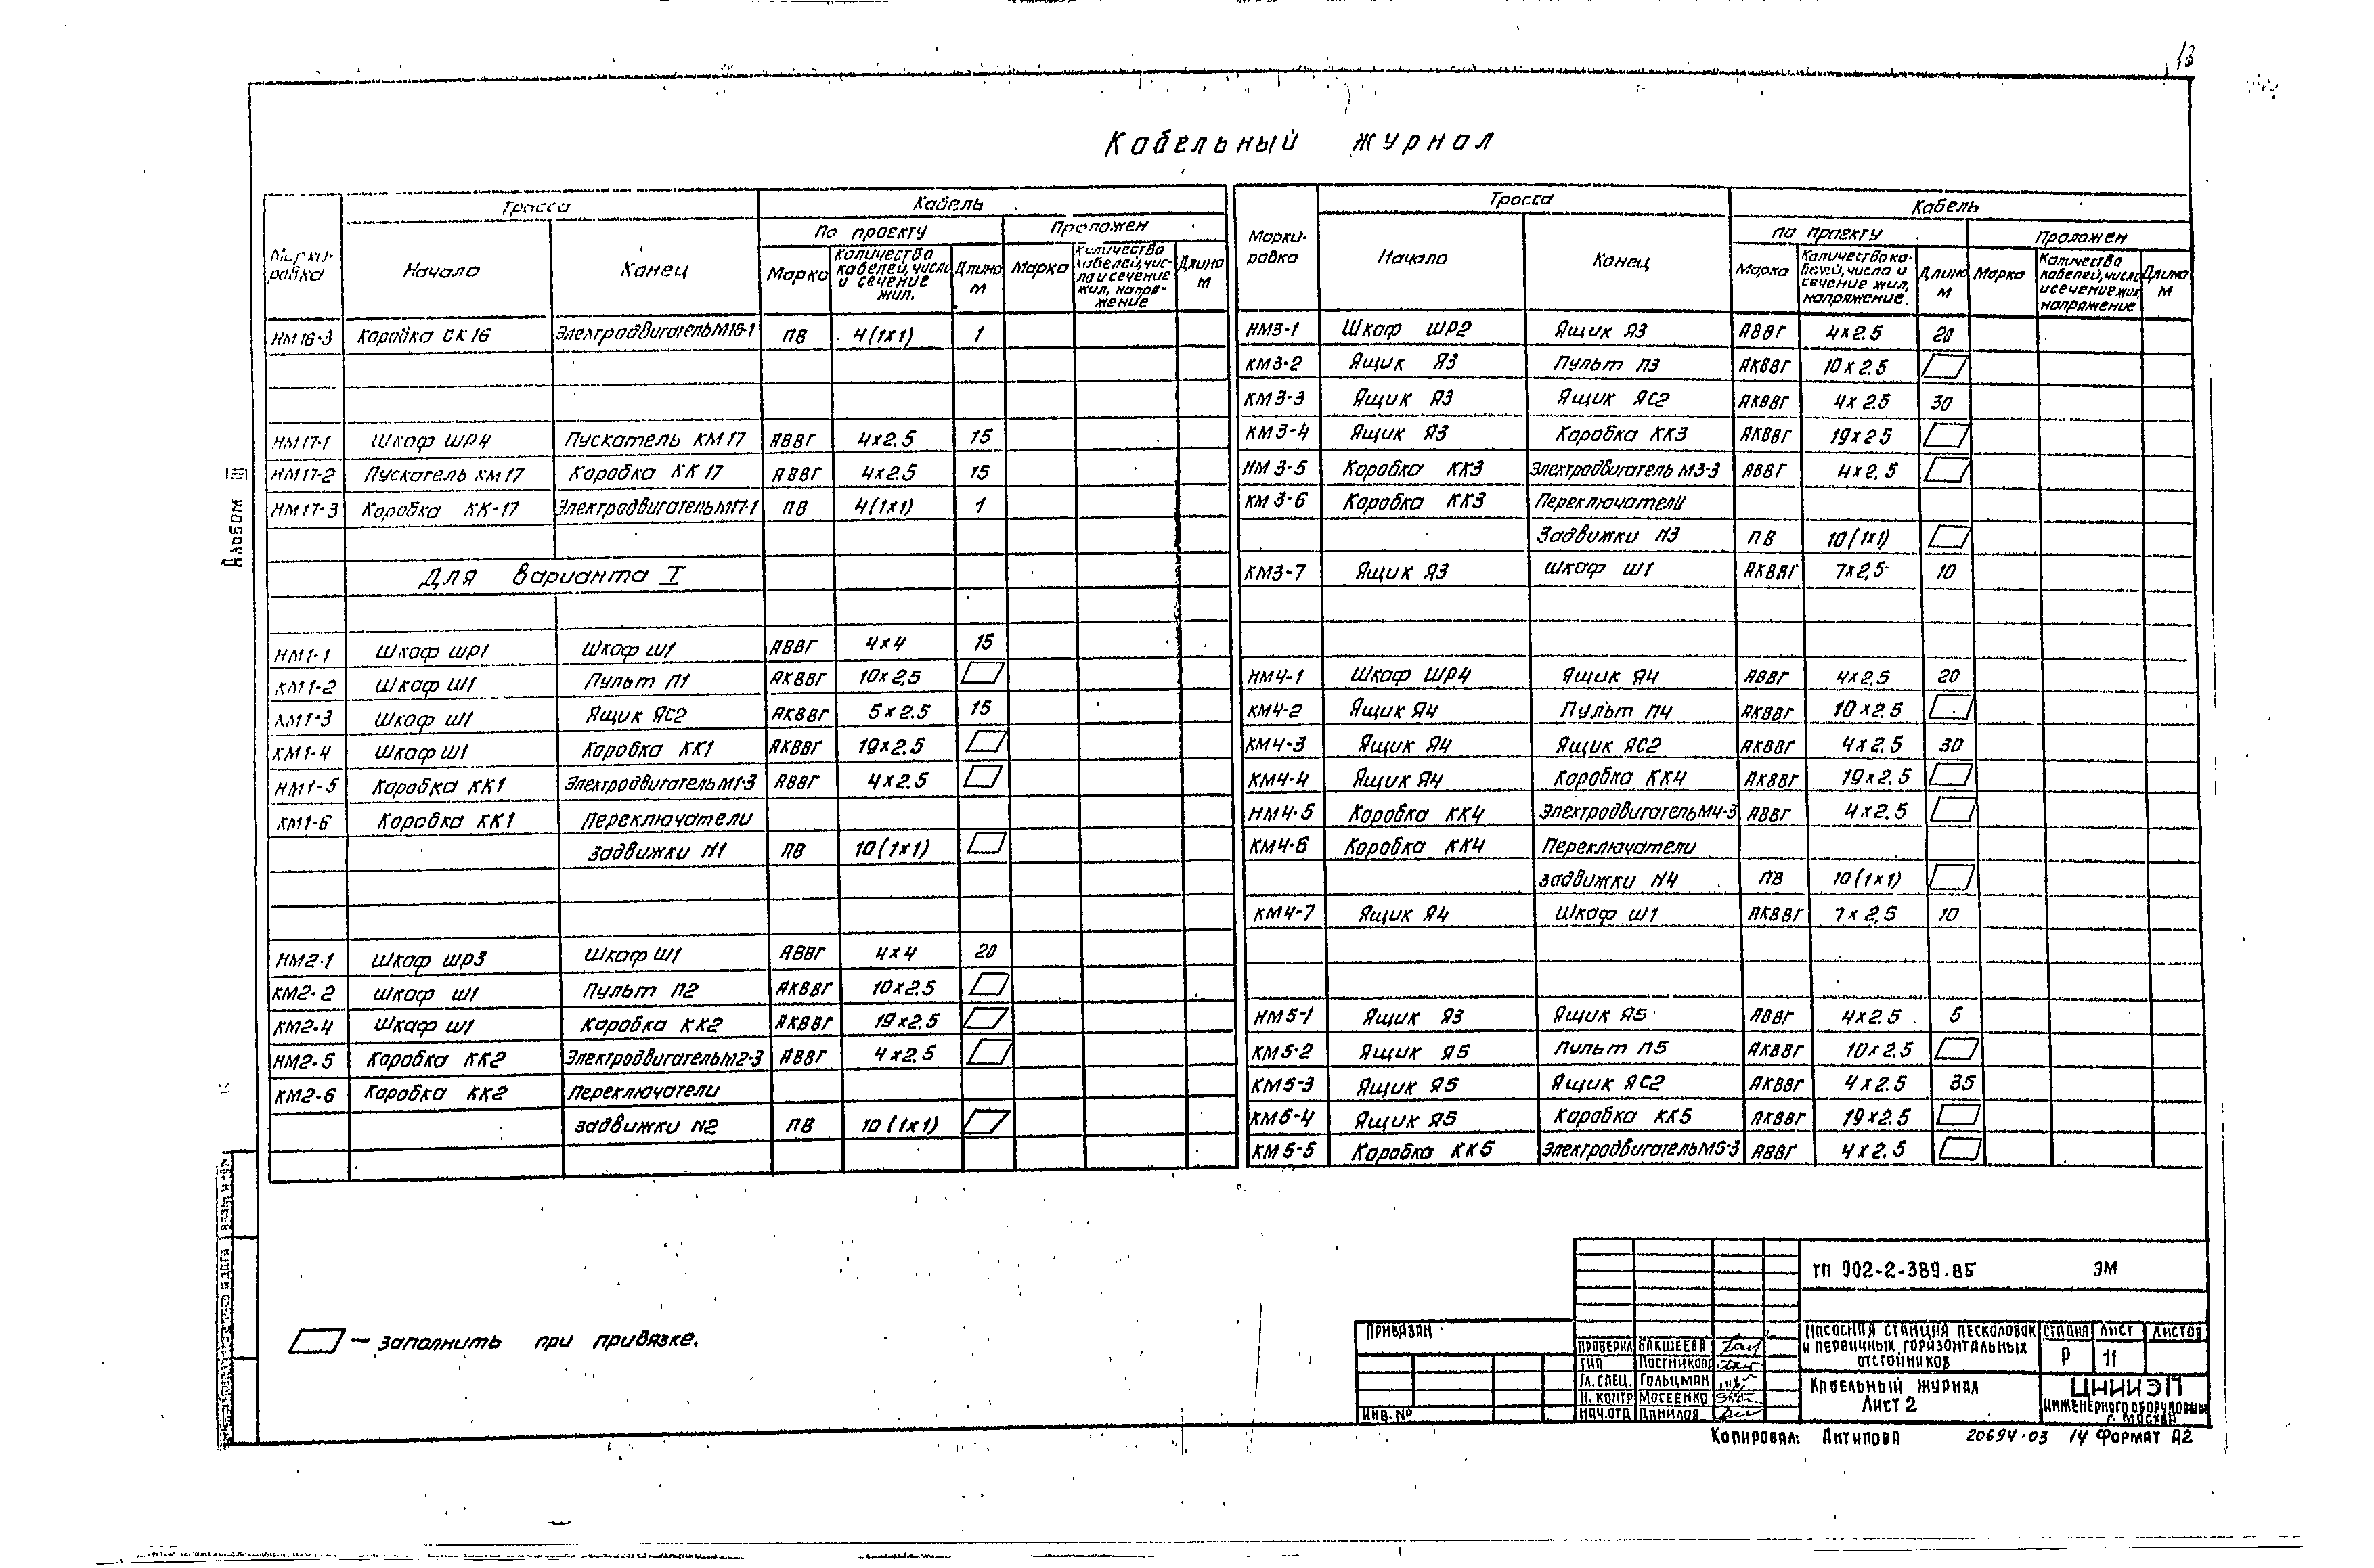 13
Кабельный журнал
Маркировка Трасса Кабель
Начало Конец По проекту Проложен
Марка Количество кабелей, число и сечение жил. Длина м Марка Количество кабелей, число и сечение жил, напряжение Длина м
НМ16-3 Коробка СК16 Электродвигатель М16-1 ПВ 4(1х1) 1
НМ17-1 Шкаф ШР4 Пускатель КМ17 АВВГ 4х2.5 15
НМ17-2 Пускатель КМ17 Коробка КК17 АВВГ 4х2.5 15
НМ17-3 Коробка КК-17 Электродвигатель М17-1 ПВ 4(1х1) 1
Для варианта I
НМ1-1 Шкаф ШР1 Шкаф Ш1 АВВГ 4х4 15
КМ1-2 Шкаф Ш1 Пульт П1 АКВВГ 10х2,5
КМ1-3 Шкаф Ш1 Ящик ЯС2 АКВВГ 5х2.5 15
КМ1-4 Шкаф Ш1 Коробка КК1 АКВВГ 19х2.5
НМ1-5 Коробка КК1 Электродвигатель М1-3 АВВГ 4х2.5
КМ1-6 Коробка КК1 Переключатели
задвижки N1 ПВ 10(1х1)
НМ2-1 Шкаф ШР3 Шкаф Ш1 АВВГ 4х4 20
КМ2-2 Шкаф Ш1 Пульт П2 АКВВГ 10х2.5
КМ2-4 Шкаф Ш1 Коробка КК2 АКВВГ 19х2.5
НМ2-5 Коробка КК2 Электродвигатель М2-3 АВВГ 4х2.5
КМ2-6 Коробка КК2 Переключатели
задвижки N2 ПВ 10(1х1)
Маркировка Трасса Кабель
Начало Конец По проекту Проложен
Марка Количество кабелей, число и сечение жил, напряжение. Длина м Марка Количество кабелей, число и сечение жил, напряжение Длина м
НМ3-1 Шкаф ШР2 Ящик Я3 АВВГ 4х2.5 20
КМ3-2 Ящик Я3 Пульт П3 АКВВГ 10х2.5
КМ3-3 Ящик Я3 Ящик ЯС2 АКВВГ 4х2.5 30
КМ3-4 Ящик Я3 Коробка КК3 АКВВГ 19х25
НМ3-5 Коробка КК3 Электродвигатель М3-3 АВВГ 4х2.5
КМ3-6 Коробка КК3 Переключатели
Задвижки N3 ПВ 10(1х1)
КМ3-7 Ящик Я3 Шкаф Ш1 АКВВГ 7х2,5 10
НМ4-1 Шкаф ШР4 Ящик Я4 АВВГ 4х2.5 20
КМ4-2 Ящик Я4 Пульт П4 АКВВГ 10х2.5
КМ4-3 Ящик Я4 Ящик ЯС2 АКВВГ 4х2.5 30
КМ4-4 Ящик Я4 Коробка КК4 АКВВГ 19х2.5
НМ4-5 Коробка КК4 Электродвигатель М4-3 АВВГ 4х2.5
КМ4-6 Коробка КК4 Переключатели
задвижки N4 ПВ 10(1х1)
КМ4-7 Ящик Я4 Шкаф Ш1 АКВВГ 7х2,5 10
НМ5-1 Ящик Я3 Ящик Я5 АВВГ 4х2.5 5
КМ5-2 Ящик Я5 Пульт П5 АКВВГ 10х2.5
КМ5-3 Ящик Я5 Ящик ЯС2 АКВВГ 4х2.5 35
КМ5-4 Ящик Я5 Коробка КК5 АКВВГ 19х2.5
КМ5-5 Коробка КК5 Электродвигатель М5-3 АВВГ 4х2.5
Альбом III
— заполнить при привязке.
Привязан
Инв. №
ТП 902-2-389.85 ЭМ
Проверил Бакшеева
ГИП Постникова
Гл. спец. Гольцман
Н. контр Мосеенко
Нач. отд Данилов
Насосная станция песколовок
и первичных горизонтальных
отстойников
Стадия Лист Листов
Р 11
Кабельный журнал
Лист 2
ЦНИИЭП
инженерного оборудования
г. Москва
Копировал: Антипова 20694-03 14 Формат А2